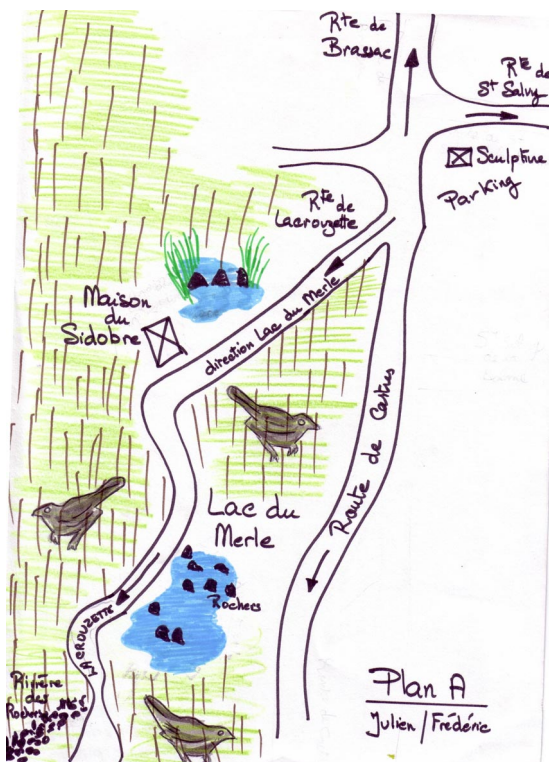 Rte de
Brassac
Rte de
St Salvy
Sculpture
Parking
Rte de
Lacrouzette
Maison
du
Sidobre
direction Lac du Merle
Route de Castres
Lac du
Merle
Rochers
LACROUZETTE
Rivière
des
Rochers
Plan A
Julien / Frédéric